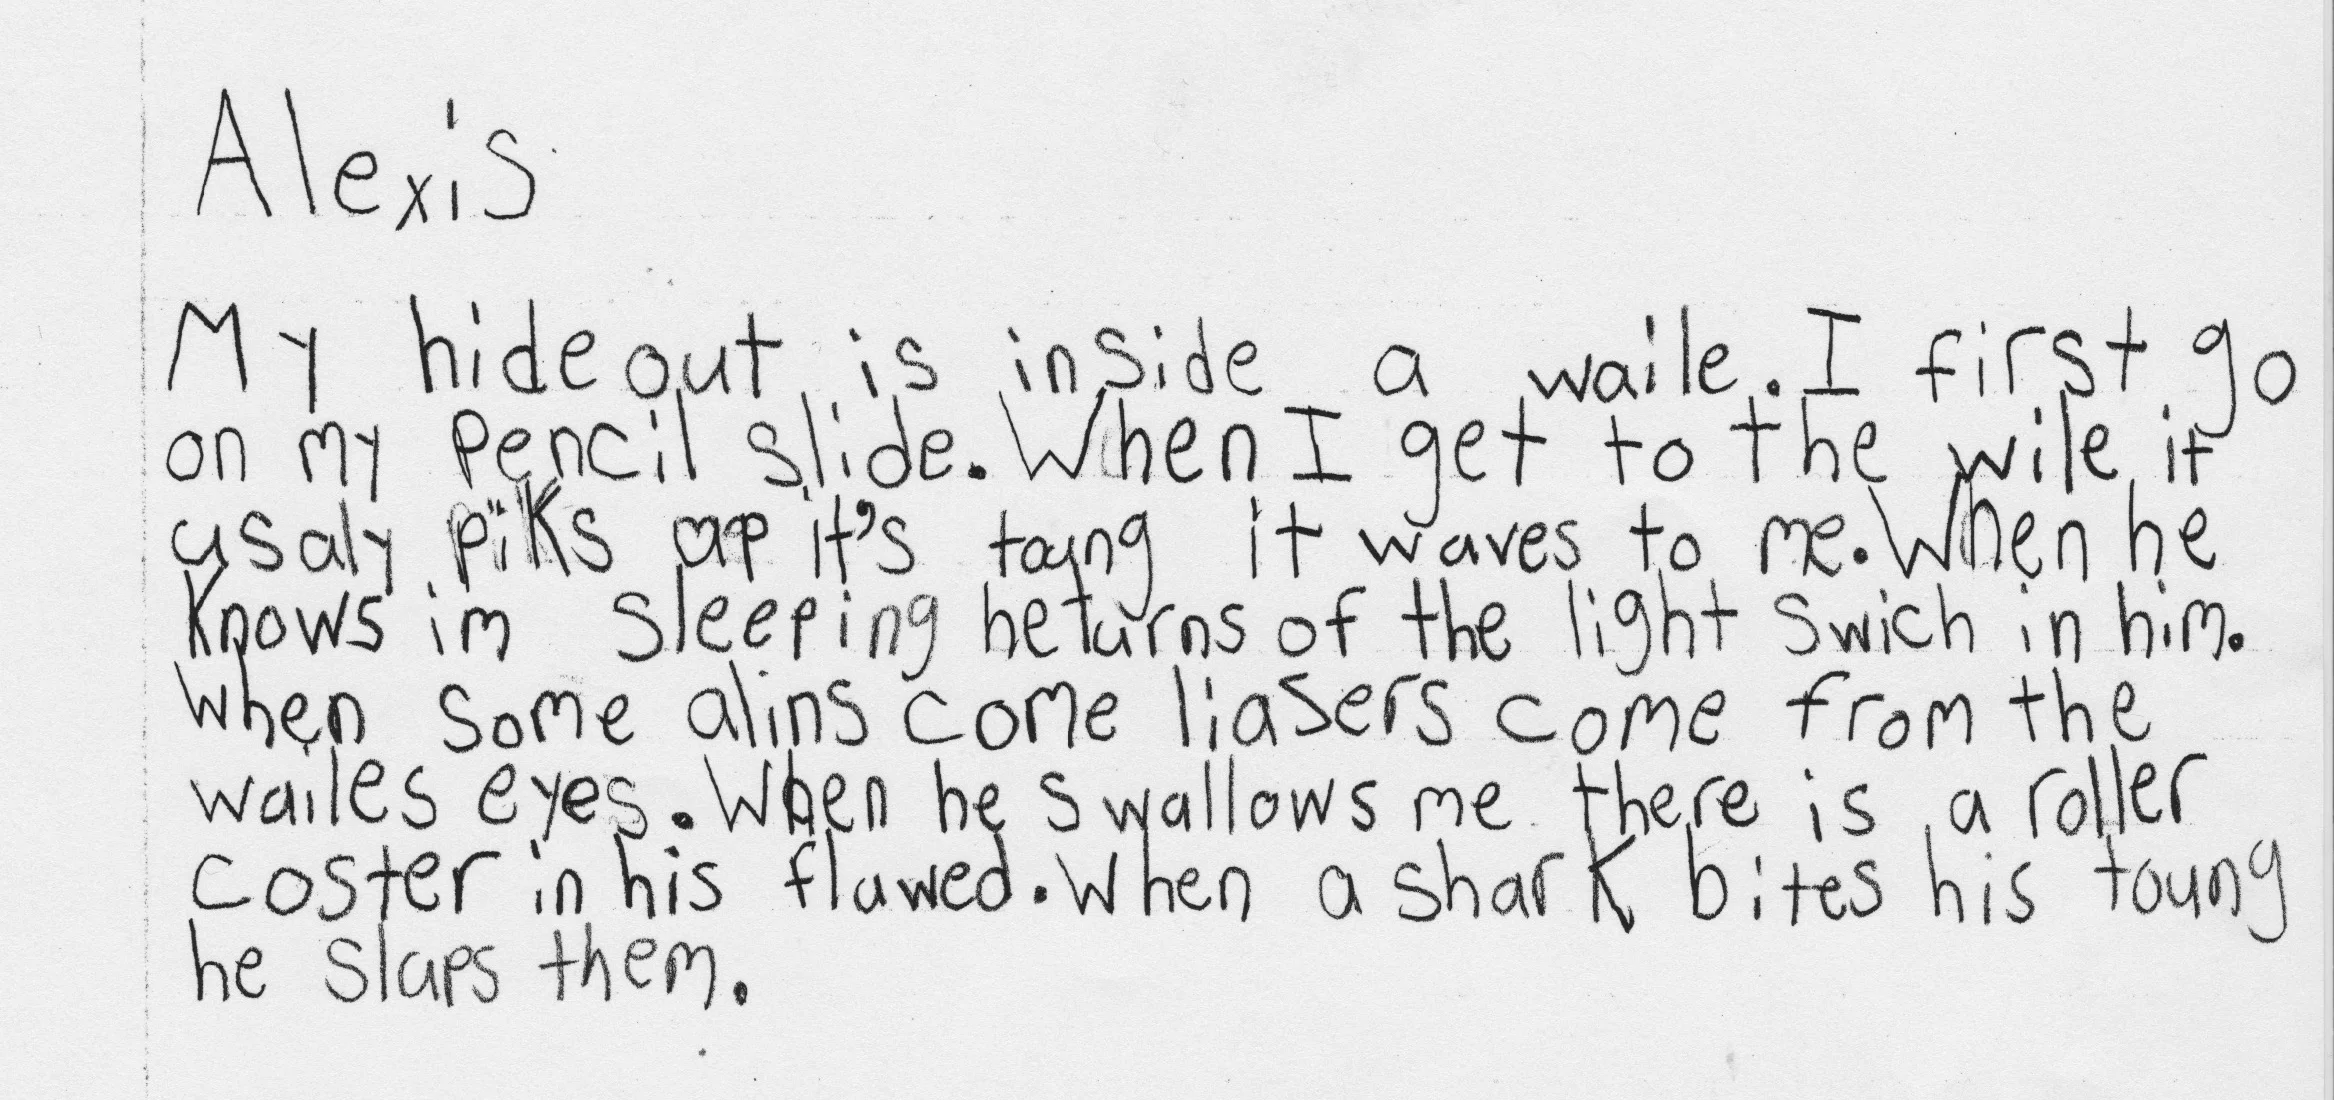 Alexis
My hideout is inside a waile. I first go
on my pencil slide. When I get to the wile it
usaly piks up it's toung it waves to me. When he
knows im sleeping heturns of the light swich in him.
When some alins come liasers come from the
wailes eyes. When he swallows me there is a roller
coster in his flawed. When a shark bites his toung
he slaps them.